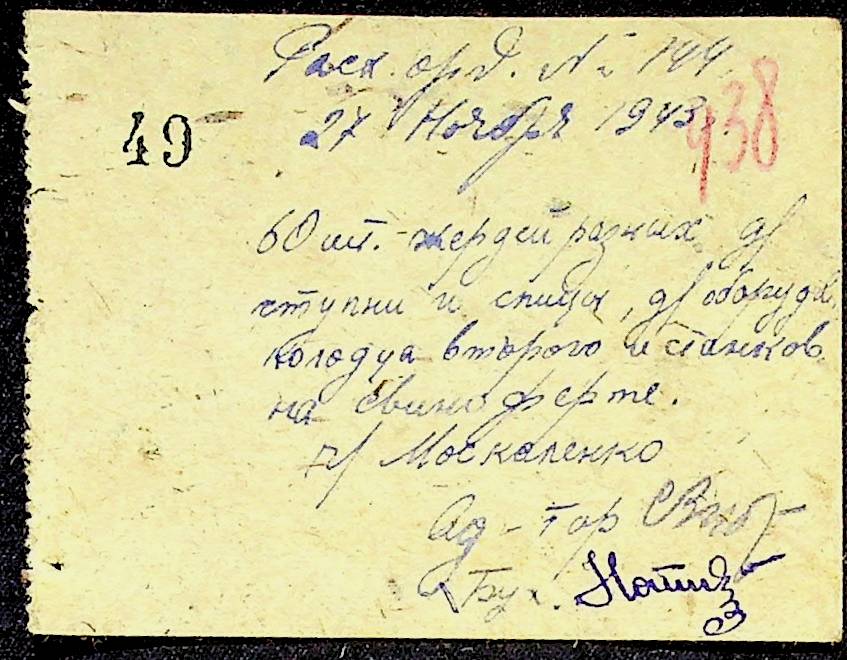 Расх. орд. № 144
27 Ноября 1943
938
49
60 шт. жердей разних д/
ступни и спицы, д/ оборудов.
колодца второго и станков
на свино ферме.
ч/ Москаленко
Ад-тор
Бух.